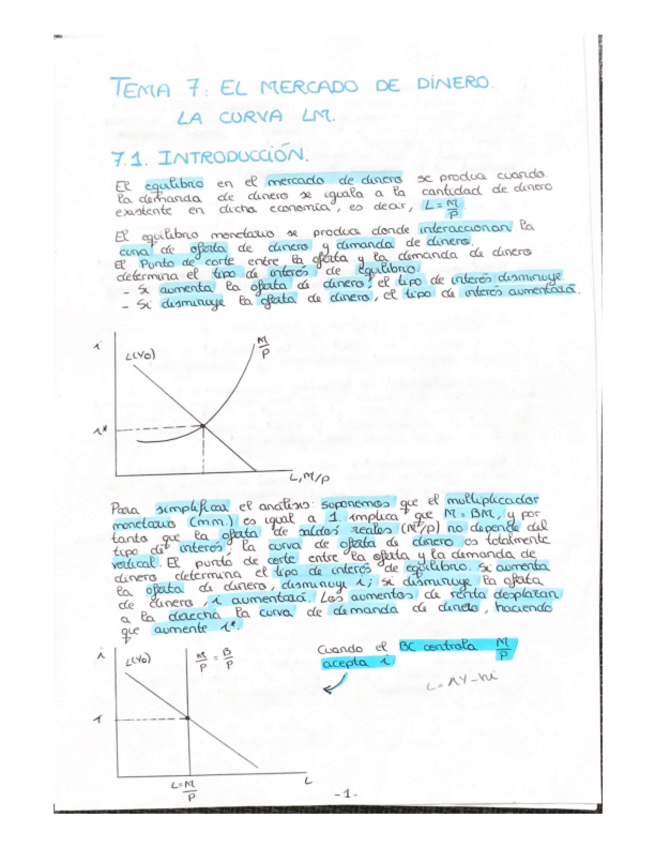 TEMA 7: EL MERCADO DE DINERO.
LA CURVA LM.
7.1. INTRODUCCIÓN.
El equilibrio en el mercado de dinero se produce cuando
la demanda de dinero se iguala a la cantidad de dinero
existente en dicha economía, es decir, L = M/P
El equilibrio monetario se produce donde interaccionan la
curva de oferta de dinero y demanda de dinero.
El Punto de corte entre la oferta y la demanda de dinero
determina el tipo de interés de equilibrio.
- Si aumenta la oferta de dinero, el tipo de interés disminuye
- Si disminuye la oferta de dinero, el tipo de interés aumentará.
i
L(Y0)
M/P
i*
L, M/P
Para simplificar el análisis: suponemos que el multiplicador
monetario (m.m.) es igual a 1. implica que M = BM, y por
tanto que la oferta de saldos reales (M/P) no depende del
tipo de interés, la curva de oferta de dinero es totalmente
vertical. El punto de corte entre la oferta y la demanda de
dinero determina el tipo de interés de equilibrio. Si aumenta
la oferta de dinero, disminuye i; si disminuye la oferta
de dinero, i aumentará. Los aumentos de renta desplazan
a la derecha la curva de demanda de dinero, haciendo
que aumente i*.
i
L(Y0)
M/P = B/P
Cuando el BC controla M/P
acepta i
L = kY - hi
i
L = M/P
L
-1-